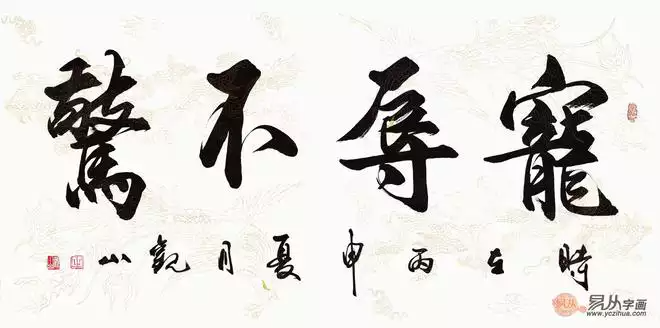 寵辱不驚
時在丙申夏月觀山
易从
易从字画
www.yczihua.com